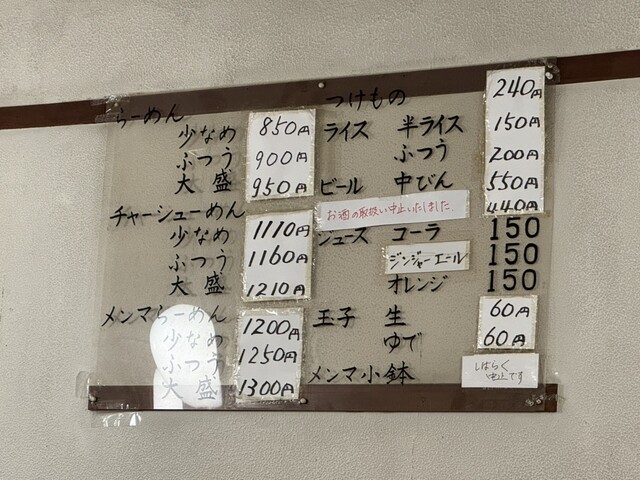 らーめん
少なめ 850円
ふつう 900円
大盛 950円
チャーシューめん
少なめ 1110円
ふつう 1160円
大盛 1210円
メンマらーめん
少なめ 1200円
ふつう 1250円
大盛 1300円
つけもの 240円
ライス 半ライス 150円
ふつう 200円
ビール 中びん 550円
お酒の取扱い中止いたしました。 440円
ジュース コーラ 150
ジンジャーエール 150
オレンジ 150
玉子 生 60円
ゆで 60円
メンマ小鉢 しばらく
中止です